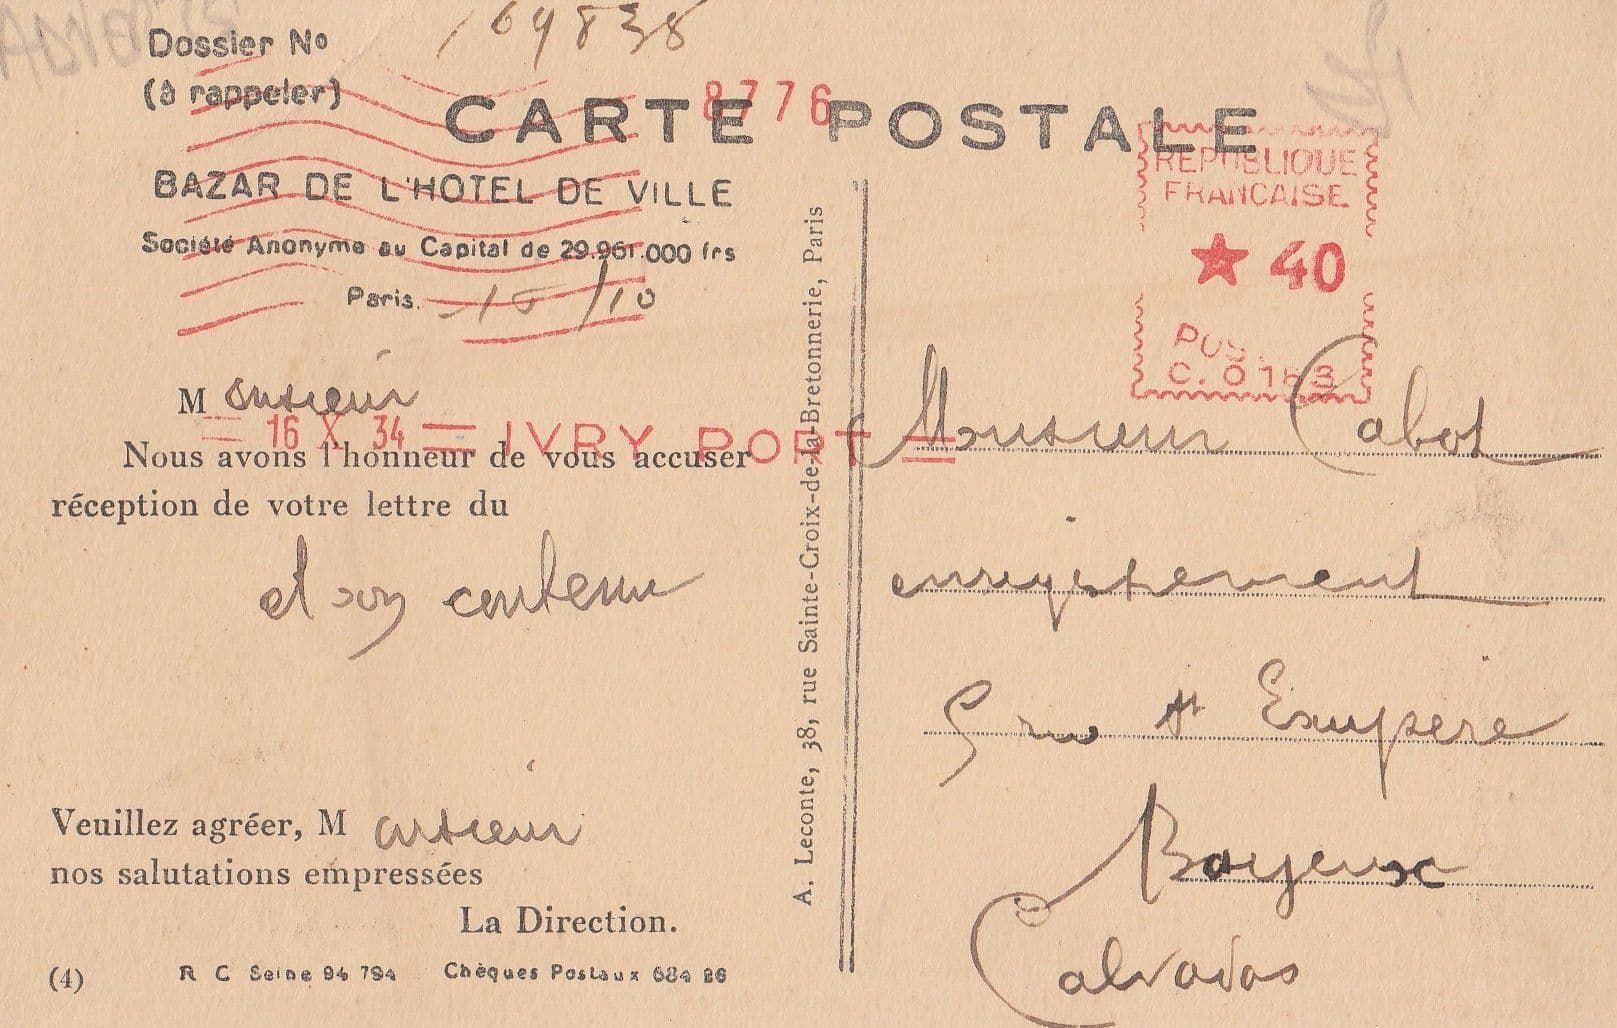 Dossier Nº 169838
(à rappeler)
8776
CARTE POSTALE
BAZAR DE L'HOTEL DE VILLE
Société Anonyme au Capital de 29.961.000 frs
Paris. 15/10
REPUBLIQUE
FRANCAISE
★ 40
POS.
C. 0153
Monsieur
16 X 34 IVRY PORT
Nous avons l'honneur de vous accuser
réception de votre lettre du
et son contenu
Veuillez agréer, Monsieur
nos salutations empressées
La Direction.
(4) R C Seine 94 794 Chèques Postaux 684 26
A. Leconte, 38, rue Sainte-Croix-de-la-Bretonnerie, Paris
Monsieur Cabot
enregistrement
5 rue St Exupère
Bayeux
Calvados